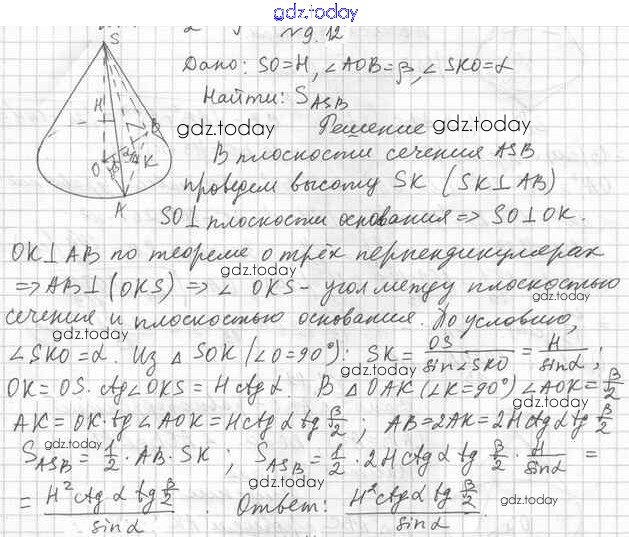 gdz.today
№9.12
S
H
O
β
α
K
B
A
Дано: SO=H, ∠AOB=β, ∠SKO=α
Найти: S_ASB
gdz.today gdz.today
Решение
В плоскости сечения ASB
проведем высоту SK (SK⊥AB)
SO⊥плоскости основания => SO⊥OK.
OK⊥AB по теореме о трёх перпендикулярах
gdz.today
=> AB⊥(OKS) => ∠OKS - угол между плоскостью
gdz.today
сечения и плоскостью основания. По условию,
gdz.today
∠SKO=α. Из △SOK (∠O=90°): SK = OS/sin∠SKO = H/sinα;
gdz.today
OK=OS·ctg∠OKS = Hctgα В △OAK (∠K=90°) ∠AOK=β/2
gdz.today
AK=OK·tg∠AOK=Hctgα tg β/2; AB=2AK=2Hctgα tg β/2
gdz.today
S_ASB = 1/2·AB·SK; S_ASB = 1/2·2Hctgα tg β/2·H/sinα =
gdz.today
= H²ctgα tg β/2 / sinα. Ответ: H²ctgα tg β/2 / sinα
gdz.today gdz.today gdz.today